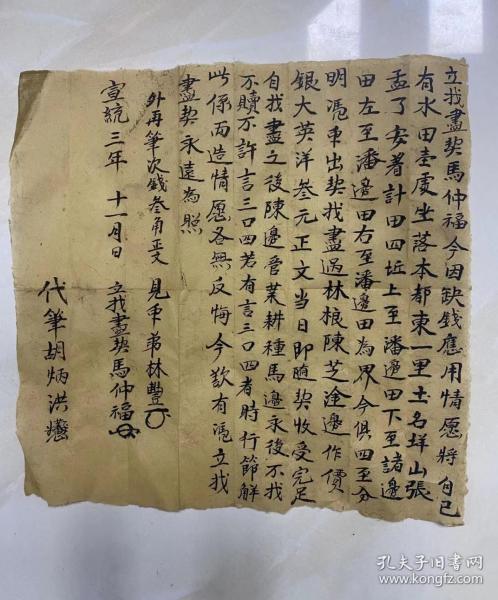 立找盡契馬仲福今因缺錢應用情愿將自己
有水田壹處坐落本都東一里土名垟山張
孟了安着計田四坵上至潘邊田下至諸邊
田左至潘邊田右至潘邊田為界今俱四至分
明憑中出契找盡過林根陳芝淦邊作價
銀大英洋叁元正文當日即隨契收受完足
自找盡之後陳邊管業耕種馬邊永後不找
不贖不許言三口四若有言三口四者時行節解
此係兩造情愿各無反悔今欲有憑立找
盡契永遠為照
外再筆次錢叁角正文
見中弟林豐
宣統三年 十一月日 立找盡契馬仲福
代筆胡炳洪
孔夫子旧书网
www.kongfz.com